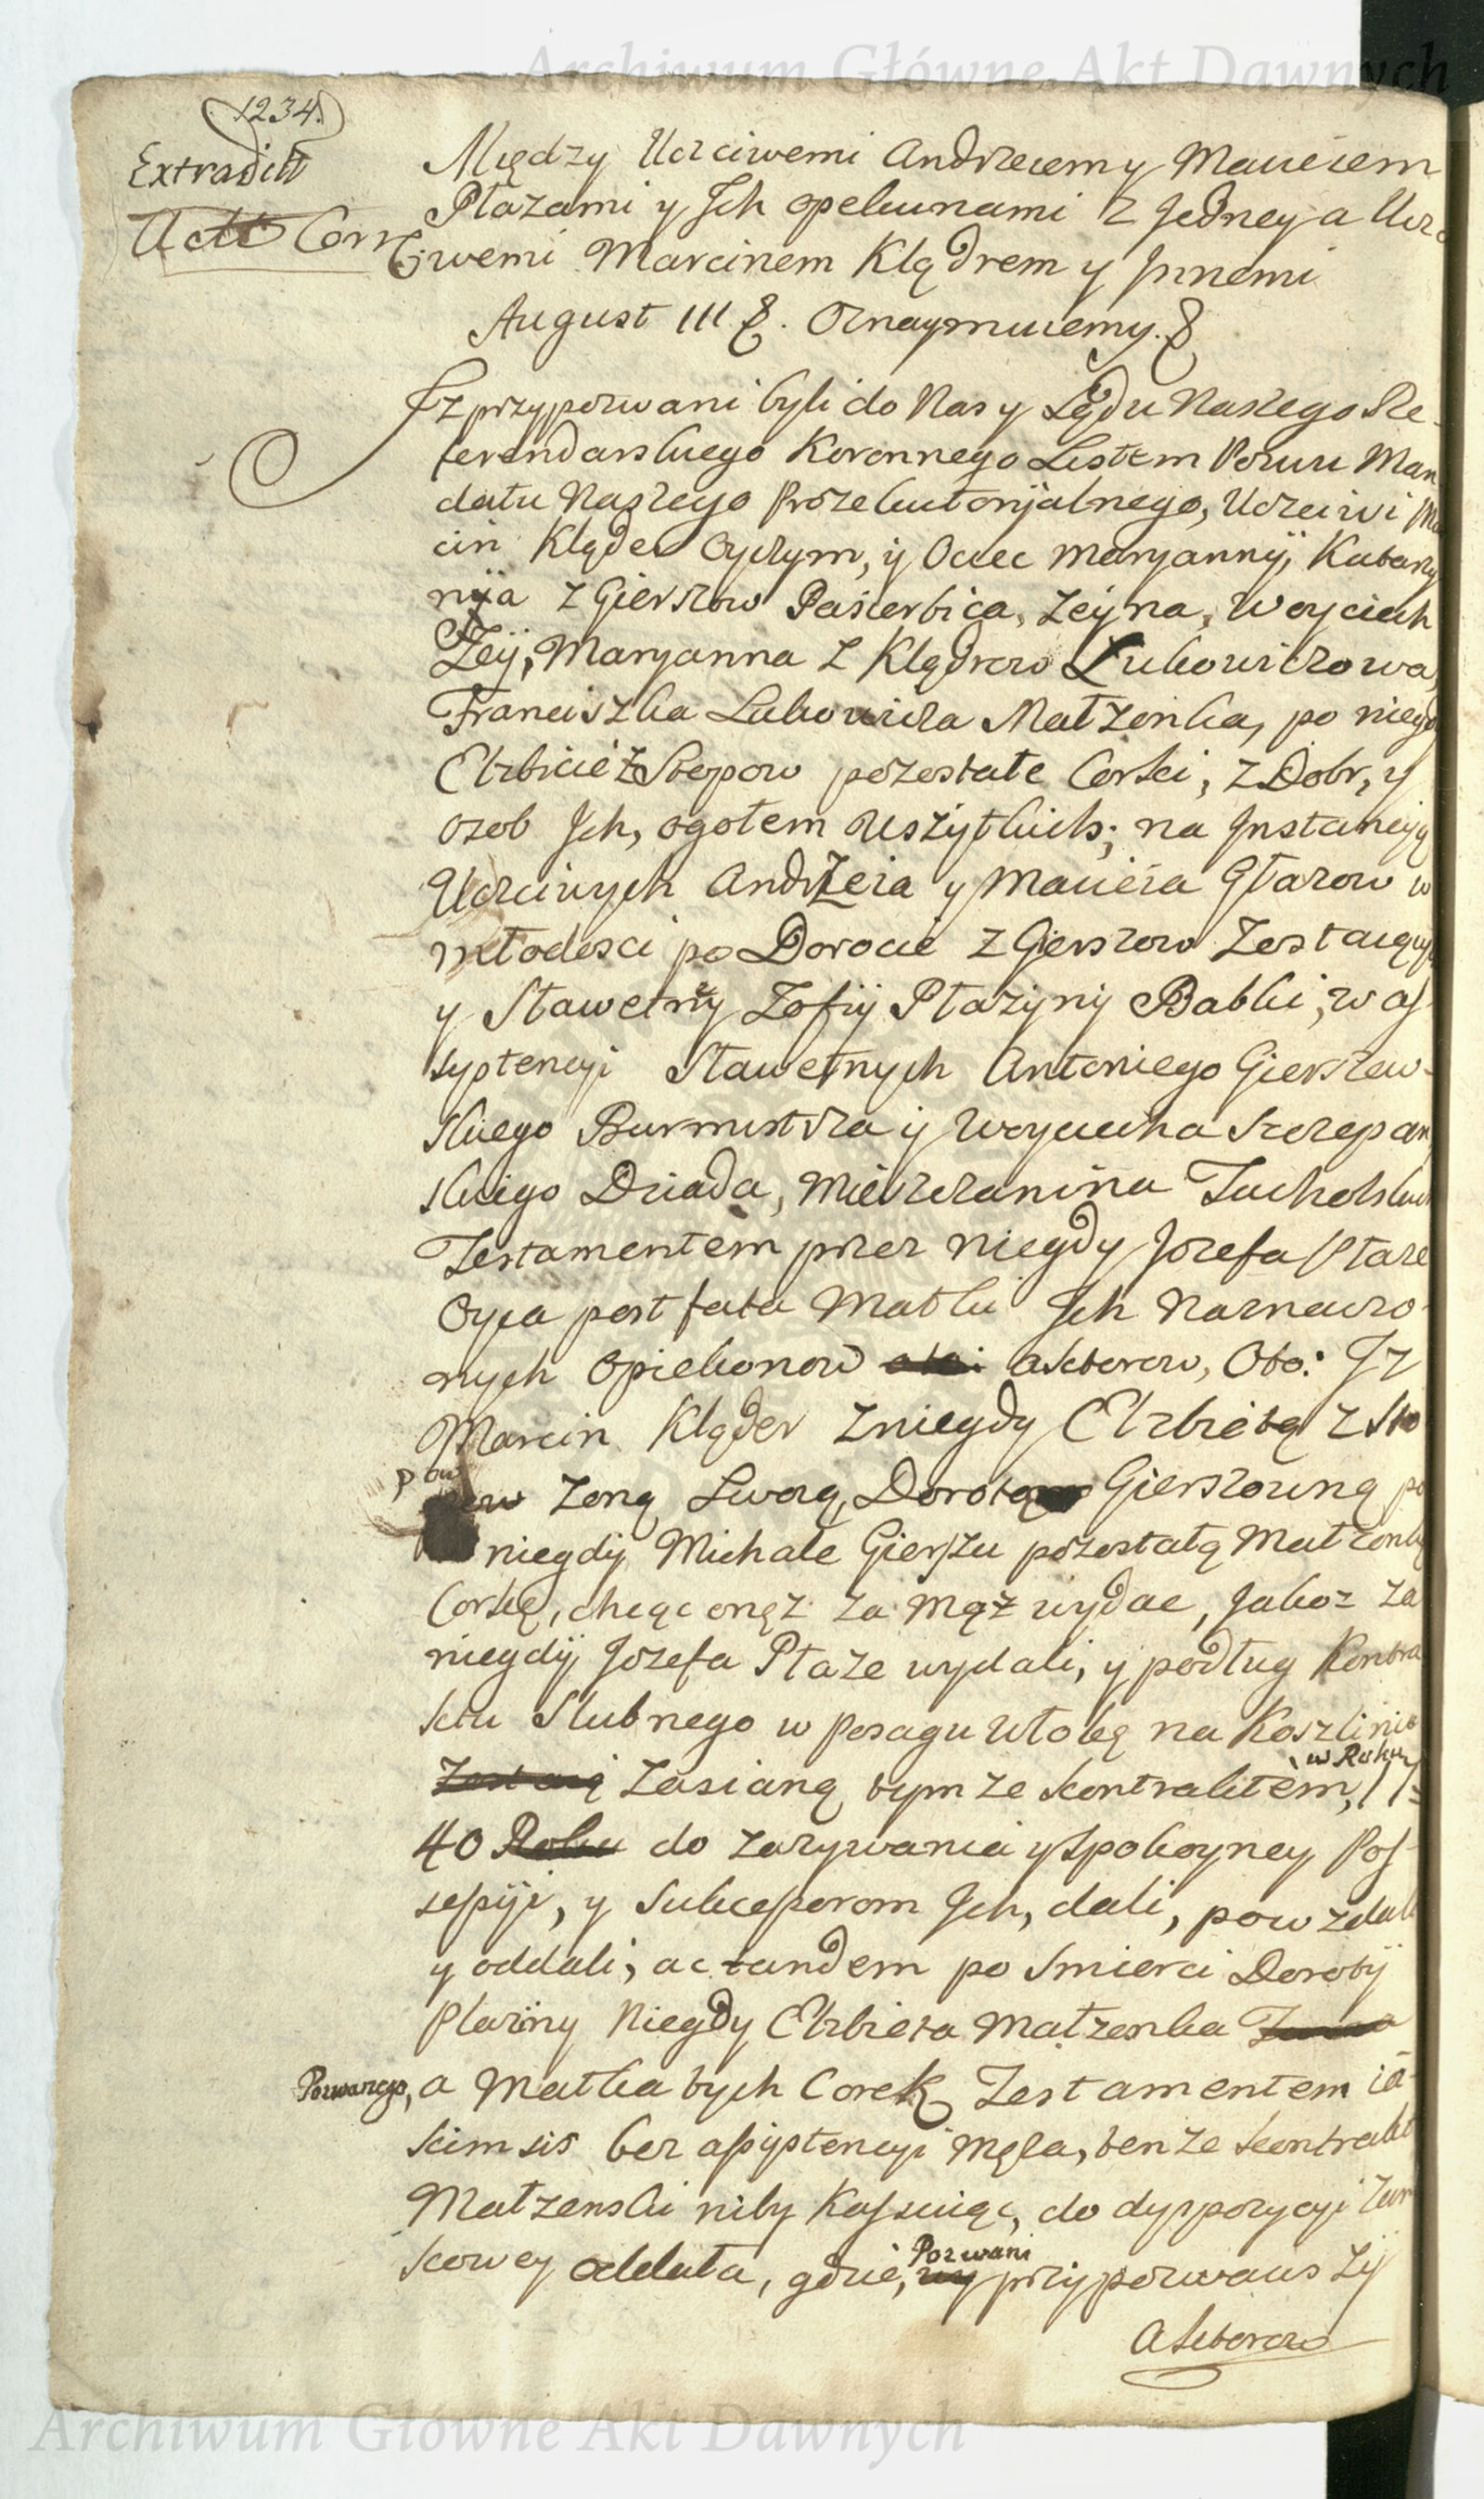 Archiwum Główne Akt Dawnych
1234.
Extraditt
Actt Corr
Między Uczciwemi Andrzeiem y Macieiem
Ptazami y Jch opekunami z Jedney a Ucz
ciwemi Marcinem Klądrem y Jnnemi
August III. Oznaymuiemy.
Jz przypozwani byli do Nas y Sądu Naszego Re-
ferendarskiego Koronnego Listem Pozwu Man
datu Naszego Przekutoryalnego, Uczciwi Mar
cin Kląder Oyczym, y Ociec Maryanny, Katarzy
nija z Gierszow Pasierbica, Zeyna, Woyciech
Zeij, Maryanna z Klądrow Lukowiczowa,
Franciszka Lukowicza Małzonka, po niegdy
Elzbicie z Stopow pozostałe Corki, z Dobr, y
ozob Jch, ogołem wszytkich; na Jnstancyą
Uczciwych Andrzeia y Macieia Ptazow w
młodosci po Dorocie z Gierszow Zostaiących
y Sławetny Zofij Ptażyny Babki, w as-
systencyi Sławetnych Antoniego Gierszew-
skiego Burmistrza y Woyciecha Szczepan
skiego Dziada, Mieszczanina Tucholskich
Testamentem przez niegdy Jozefa Ptaze
Oyca post fata Matki Jch Naznaczo-
nych Opiekonow aktorow, Oto: Jz
Marcin Kląder z niegdy Elzbietą z Sto
pow Zoną Swoią, Dorotą Gierszowną po
niegdy Michale Gierszu pozostałą Małzonkę
Corkę, chcąc onęz za Mąż wydac, Jakoz za
niegdy Jozefa Ptaze wydali, y podług Kontra
ktu Slubnego w Posagu włokę na Koszlinie
Zasianą tymze kontraktem, w Roku 17
40 do Zazywania y Spokoyney Pos-
sessyi, y Sukcessorom Jch, dali, powzdali
y oddali, ac tandem po Smierci Doroty
Ptazyny Niegdy Elzbieta Małzonka
Pozwanego, a Matka tych Corek Testamentem ia-
kimsis bez assystencyi Męża, tenze kontrakt
Małzenski niby Kassuiąc, do dyspozycyi Zam
kowey oddała, gdzie, Pozwani przypozwawszy
Aktorow
Archiwum Główne Akt Dawnych